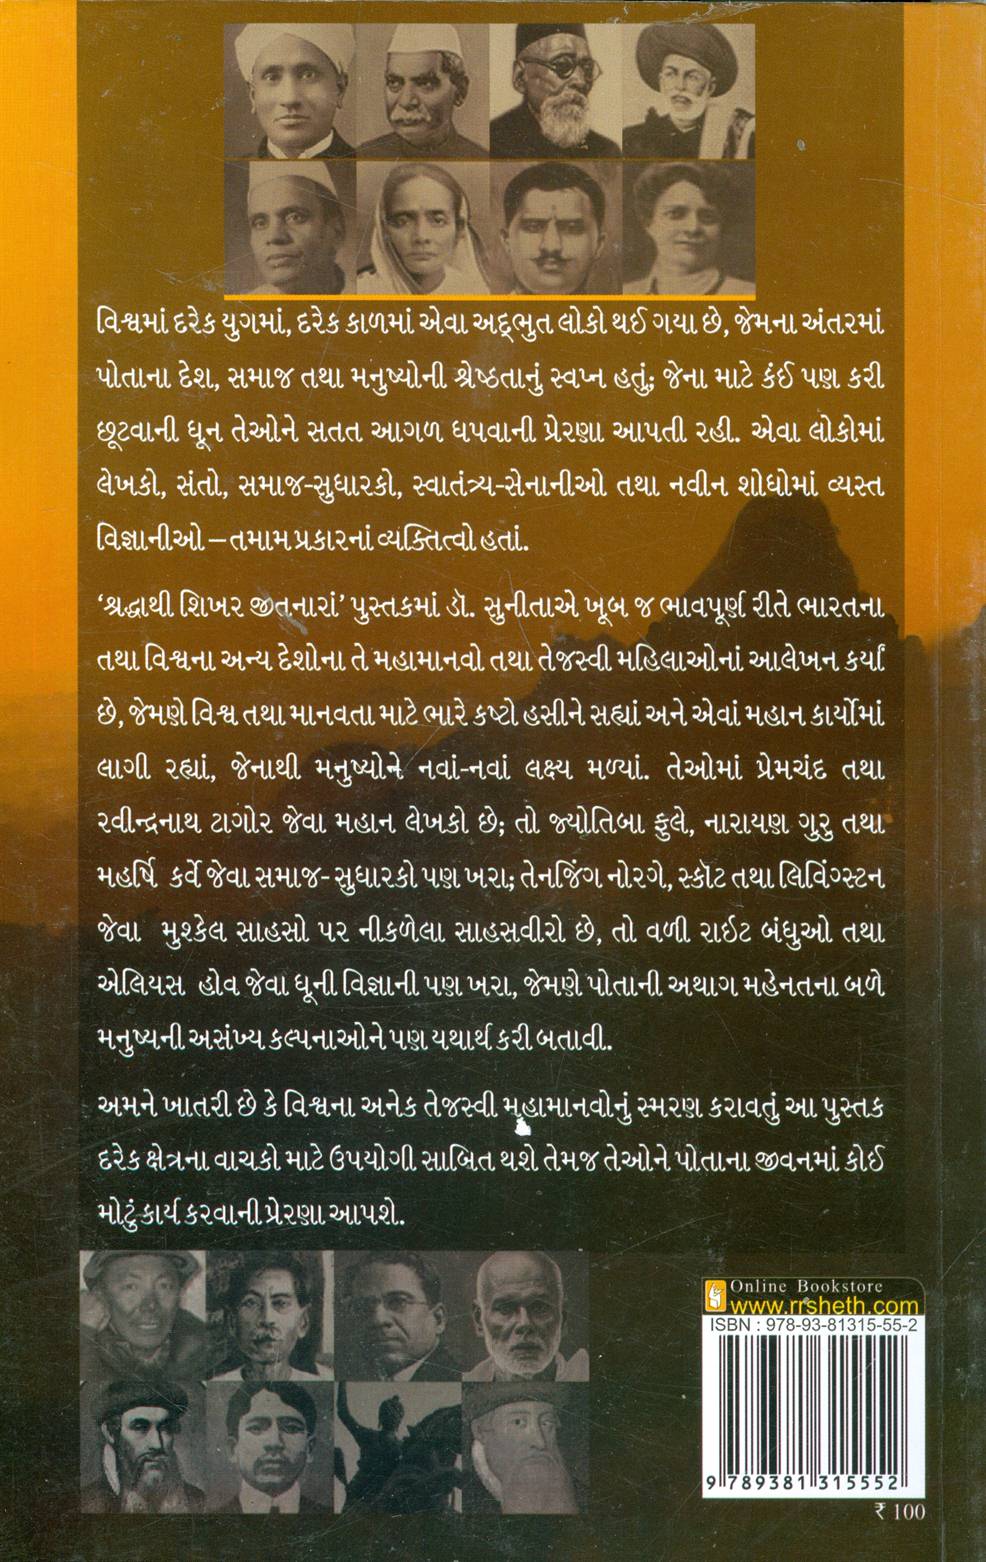 વિશ્વમાં દરેક યુગમાં, દરેક કાળમાં એવા અદ્‌ભુત લોકો થઈ ગયા છે, જેમના અંતરમાં
પોતાના દેશ, સમાજ તથા મનુષ્યોની શ્રેષ્ઠતાનું સ્વપ્ન હતું; જેના માટે કંઈ પણ કરી
છૂટવાની ધૂન તેઓને સતત આગળ ધપવાની પ્રેરણા આપતી રહી. એવા લોકોમાં
લેખકો, સંતો, સમાજ-સુધારકો, સ્વાતંત્ર્ય-સેનાનીઓ તથા નવીન શોધોમાં વ્યસ્ત
વિજ્ઞાનીઓ – તમામ પ્રકારનાં વ્યક્તિત્વો હતાં.
‘શ્રદ્ધાથી શિખર જીતનારાં’ પુસ્તકમાં ડૉ. સુનીતાએ ખૂબ જ ભાવપૂર્ણ રીતે ભારતના
તથા વિશ્વના અન્ય દેશોના તે મહામાનવો તથા તેજસ્વી મહિલાઓનાં આલેખન કર્યાં
છે, જેમણે વિશ્વ તથા માનવતા માટે ભારે કષ્ટો હસીને સહ્યાં અને એવાં મહાન કાર્યોમાં
લાગી રહ્યાં, જેનાથી મનુષ્યોને નવાં-નવાં લક્ષ્ય મળ્યાં. તેઓમાં પ્રેમચંદ તથા
રવીન્દ્રનાથ ટાગોર જેવા મહાન લેખકો છે; તો જ્યોતિબા ફુલે, નારાયણ ગુરુ તથા
મહર્ષિ કર્વે જેવા સમાજ- સુધારકો પણ ખરા; તેનજિંગ નોરગે, સ્કૉટ તથા લિવિંગ્સ્ટન
જેવા મુશ્કેલ સાહસો પર નીકળેલા સાહસવીરો છે, તો વળી રાઇટ બંધુઓ તથા
એલિયસ હોવ જેવા ધૂની વિજ્ઞાની પણ ખરા, જેમણે પોતાની અથાગ મહેનતના બળે
મનુષ્યની અસંખ્ય કલ્પનાઓને પણ યથાર્થ કરી બતાવી.
અમને ખાતરી છે કે વિશ્વના અનેક તેજસ્વી મહામાનવોનું સ્મરણ કરાવતું આ પુસ્તક
દરેક ક્ષેત્રના વાચકો માટે ઉપયોગી સાબિત થશે તેમજ તેઓને પોતાના જીવનમાં કોઈ
મોટું કાર્ય કરવાની પ્રેરણા આપશે.
Online Bookstore
www.rrsheth.com
ISBN : 978-93-81315-55-2
9 789381 315552
₹ 100